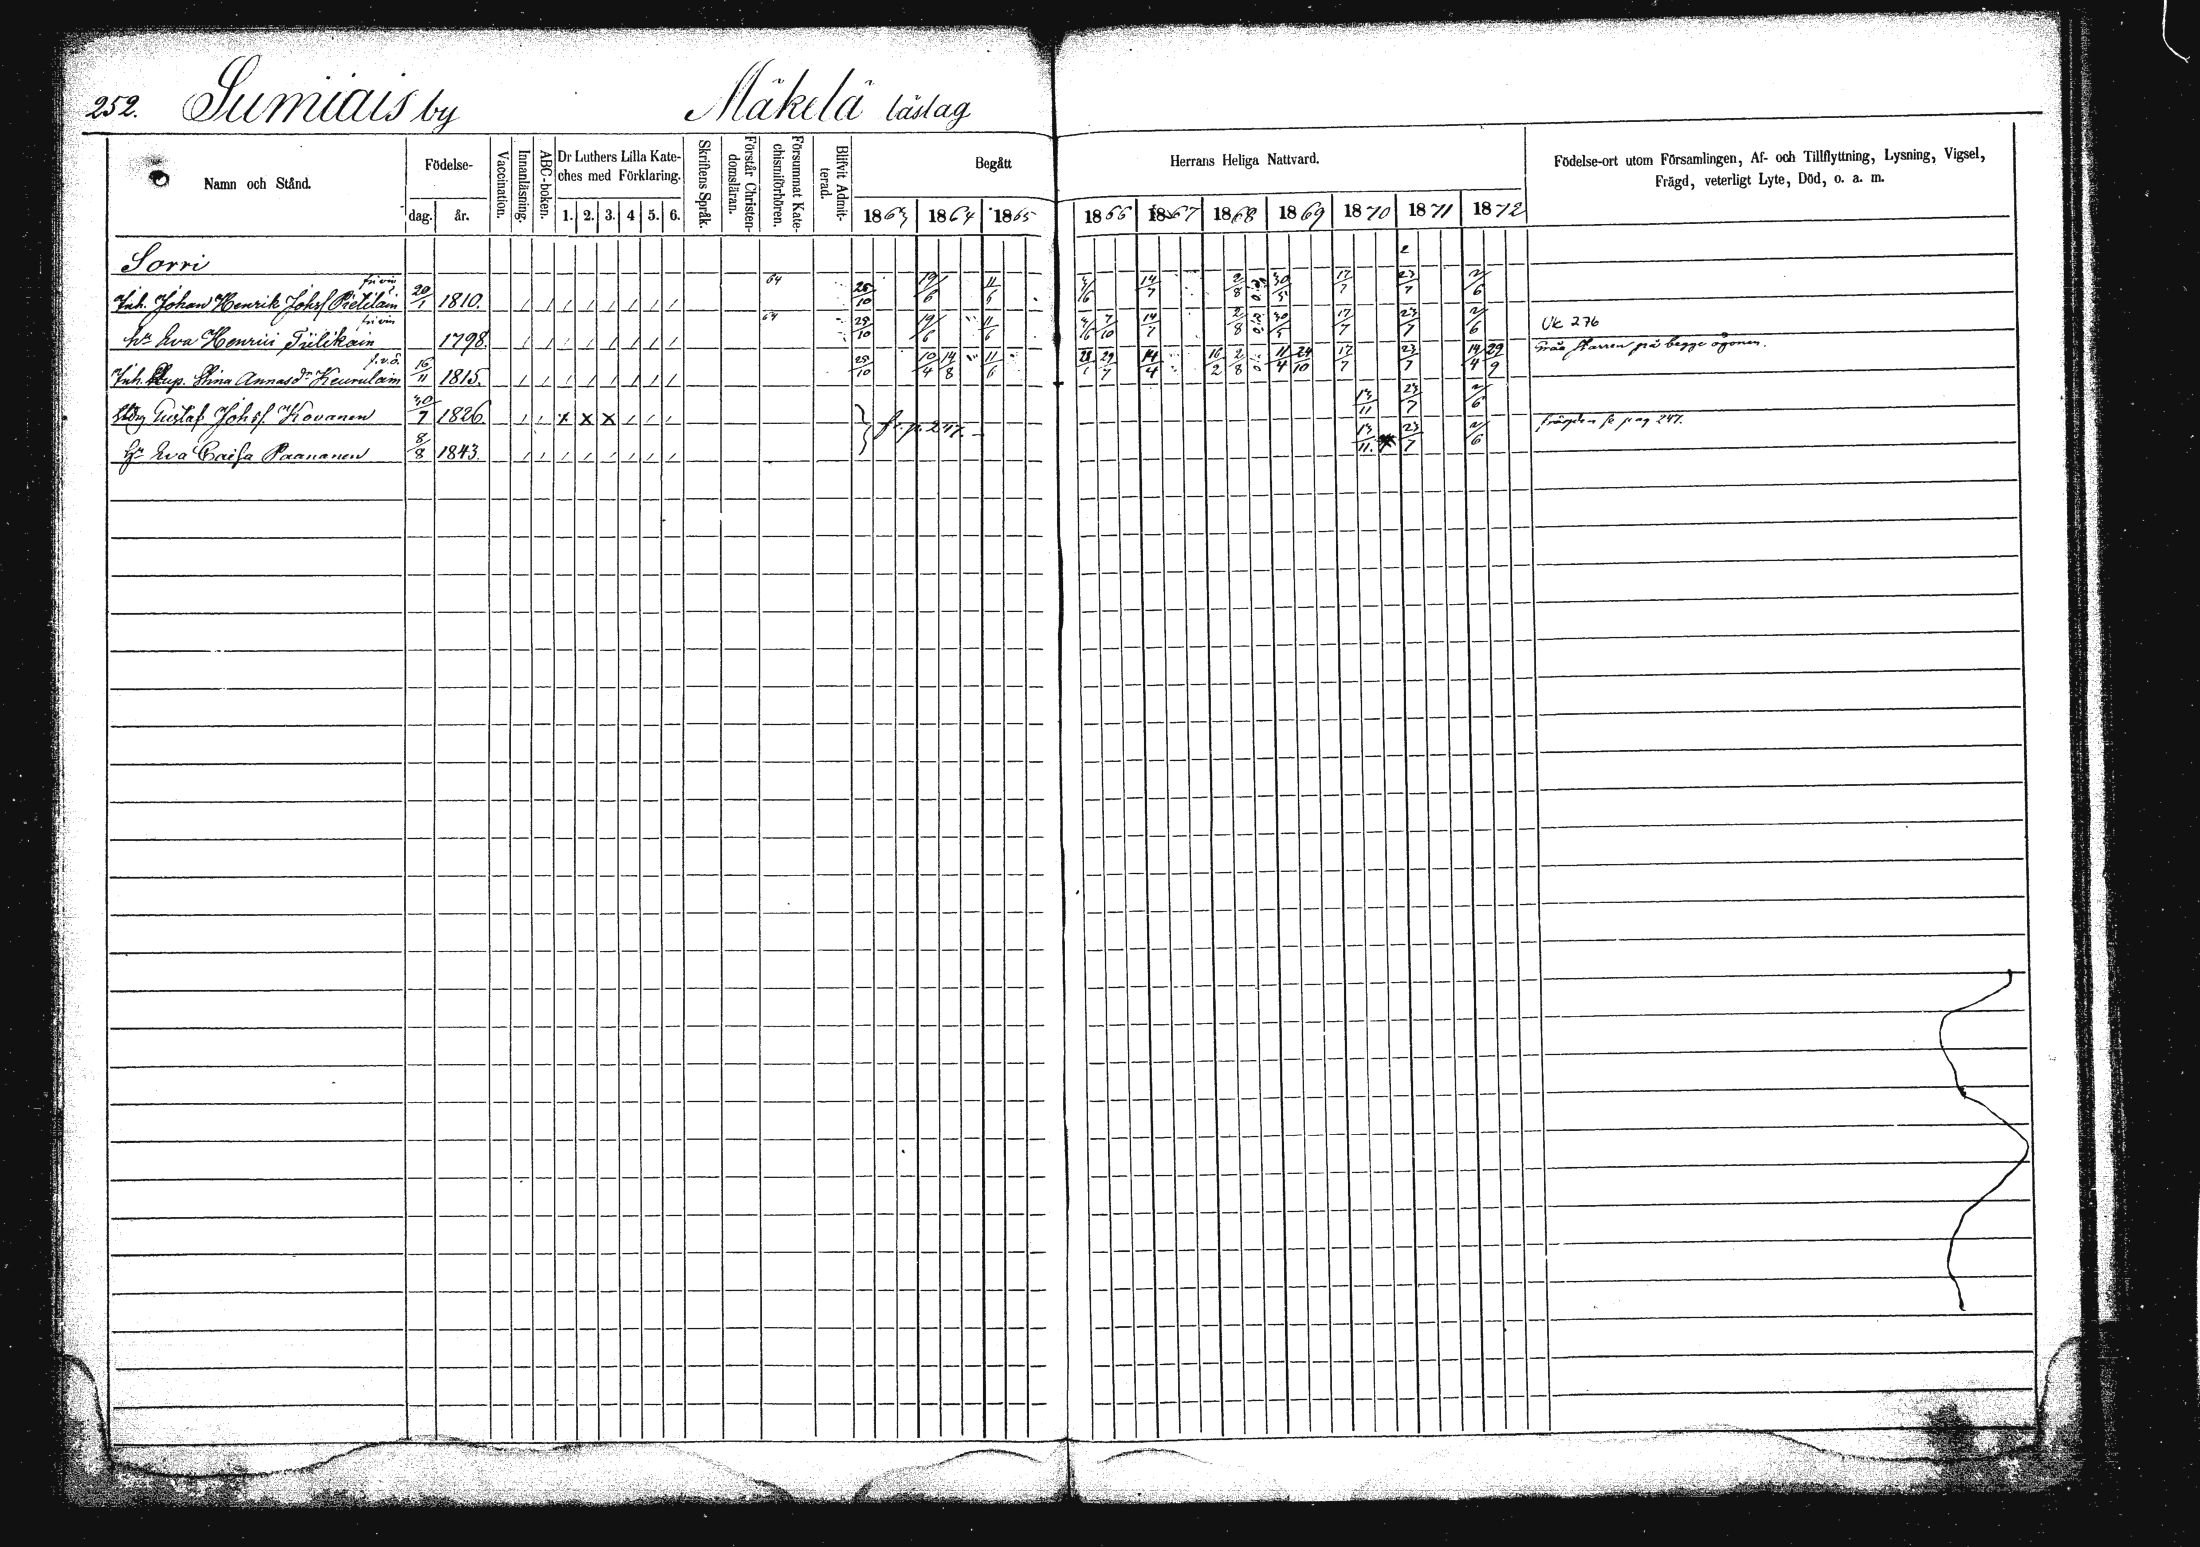 252. Sumiais by Mäkelä läslag
Namn och Stånd.
Födelse-
dag. år.
Vaccination.
Innanläsning.
ABC-boken.
Dr Luthers Lilla Kate-
ches med Förklaring.
1. 2. 3. 4 5. 6.
Skriftens Språk.
Förstår Christen-
domsläran.
Försummat Kate-
chismiförhören.
Blifvit Admit-
terad.
Begått Herrans Heliga Nattvard.
1863 1864 1865 1866 1867 1868 1869 1870 1871 1872
Födelse-ort utom Församlingen, Af- och Tillflyttning, Lysning, Vigsel,
Frägd, veterligt Lyte, Död, o. a. m.
Sorri 2
Inh. Johan Henrik Johsf Pietiläin 20/1 1810. 64 25/10 19/6 11/6 3/6 14/7 2/8 30/5 17/7 23/7 2/6
hu Eva Henrici Tiilikain 1798. 64 25/10 19/6 11/6 3/6 7/10 14/7 2/8 30/5 17/7 23/7 2/6 Uk 276
Inh. Stina Annasdr Keurulain f.v.ö. 16/11 1815. 25/10 10/4 14/8 11/6 28/1 29/7 14/4 16/2 2/8 11/4 24/10 17/7 23/7 14/4 29/9 starren på begge ögonen.
Gustaf Johsf. Kovanen 30/7 1826 x x x 13/11 23/7 2/6 frägden se pag 247.
Hu Eva Caisa Paananen 8/8 1843. fr. p. 247. 13/11. 23/7 2/6